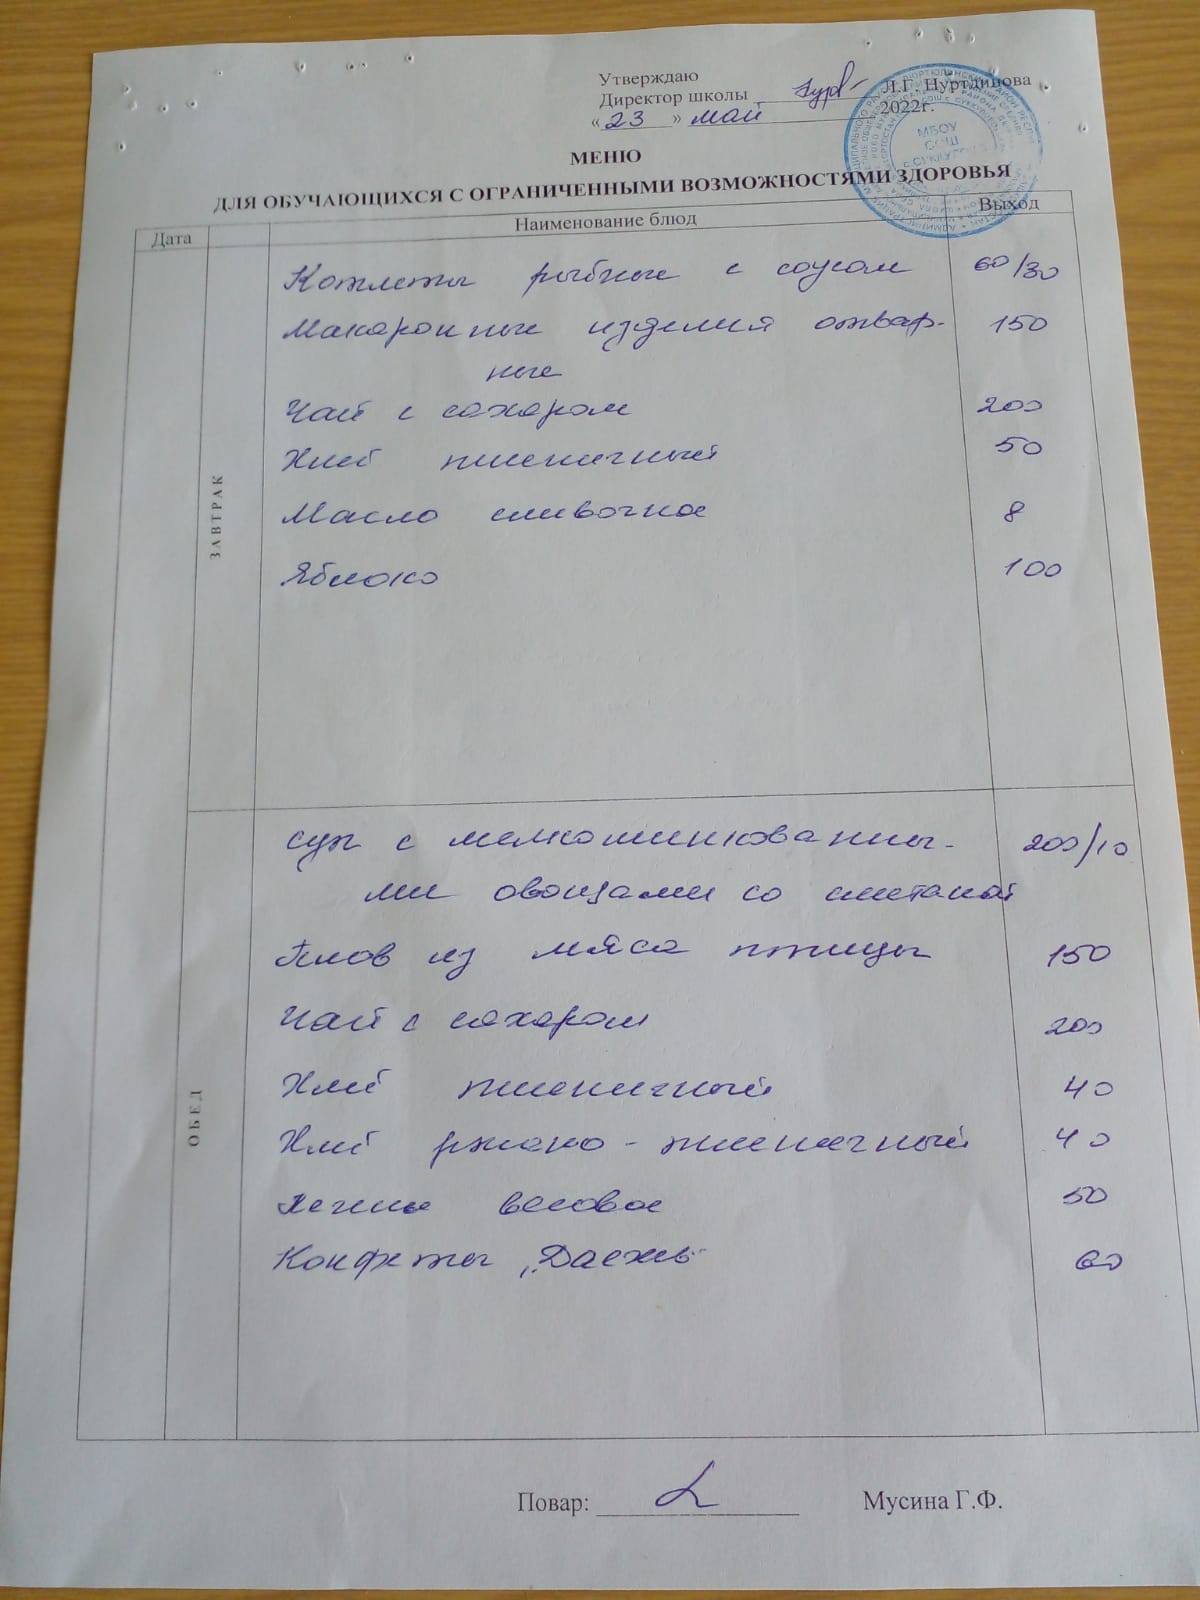 Утверждаю
Директор школы Л.Г. Нуртдинова
« 23 » май 2022г.
МБОУ
СОШ
МЕНЮ
ДЛЯ ОБУЧАЮЩИХСЯ С ОГРАНИЧЕННЫМИ ВОЗМОЖНОСТЯМИ ЗДОРОВЬЯ
Дата Наименование блюд Выход
ЗАВТРАК
Котлеты рыбные с соусом 60/30
Макаронные изделия отвар- 150
ные
Чай с сахаром 200
Хлеб пшеничный 50
Масло сливочное 8
Яблоко 100
ОБЕД
суп с мелкошинкованны- 200/10
ми овощами со сметаной
Плов из мяса птицы 150
Чай с сахаром 200
Хлеб пшеничный 40
Хлеб ржано-пшеничный 40
Печенье весовое 50
Конфеты 60
Повар: Мусина Г.Ф.